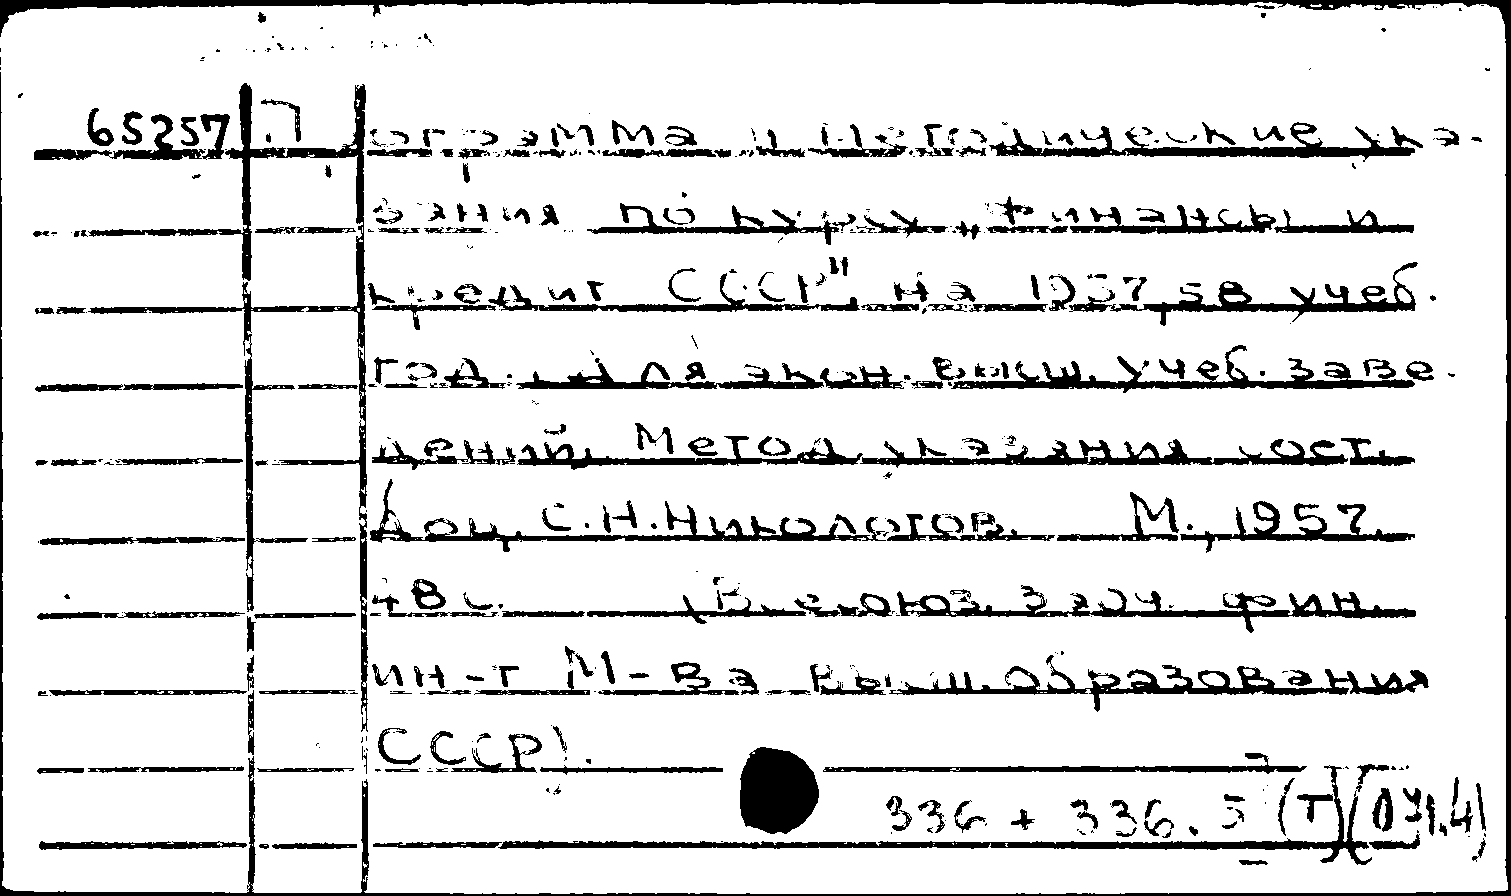 65257 Программа и методические ука-
зания по курсу „Финансы и
кредит СССР" на 1957/58 учеб.
год. Для экон. высш. учеб. заве-
дений. Метод. указания сост.
доц. С.Н.Николотов. М., 1957.
48 с. (Всесоюз. заоч. фин.
ин-т М-ва высш. образования
СССР).
336 + 336.5 (Т)(071.4)